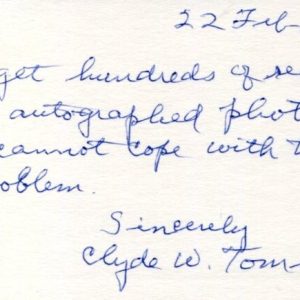 22 Feb
get hundreds of re
autographed phot
cannot cope with t
oblem.
Sincerely
Clyde W. Tom